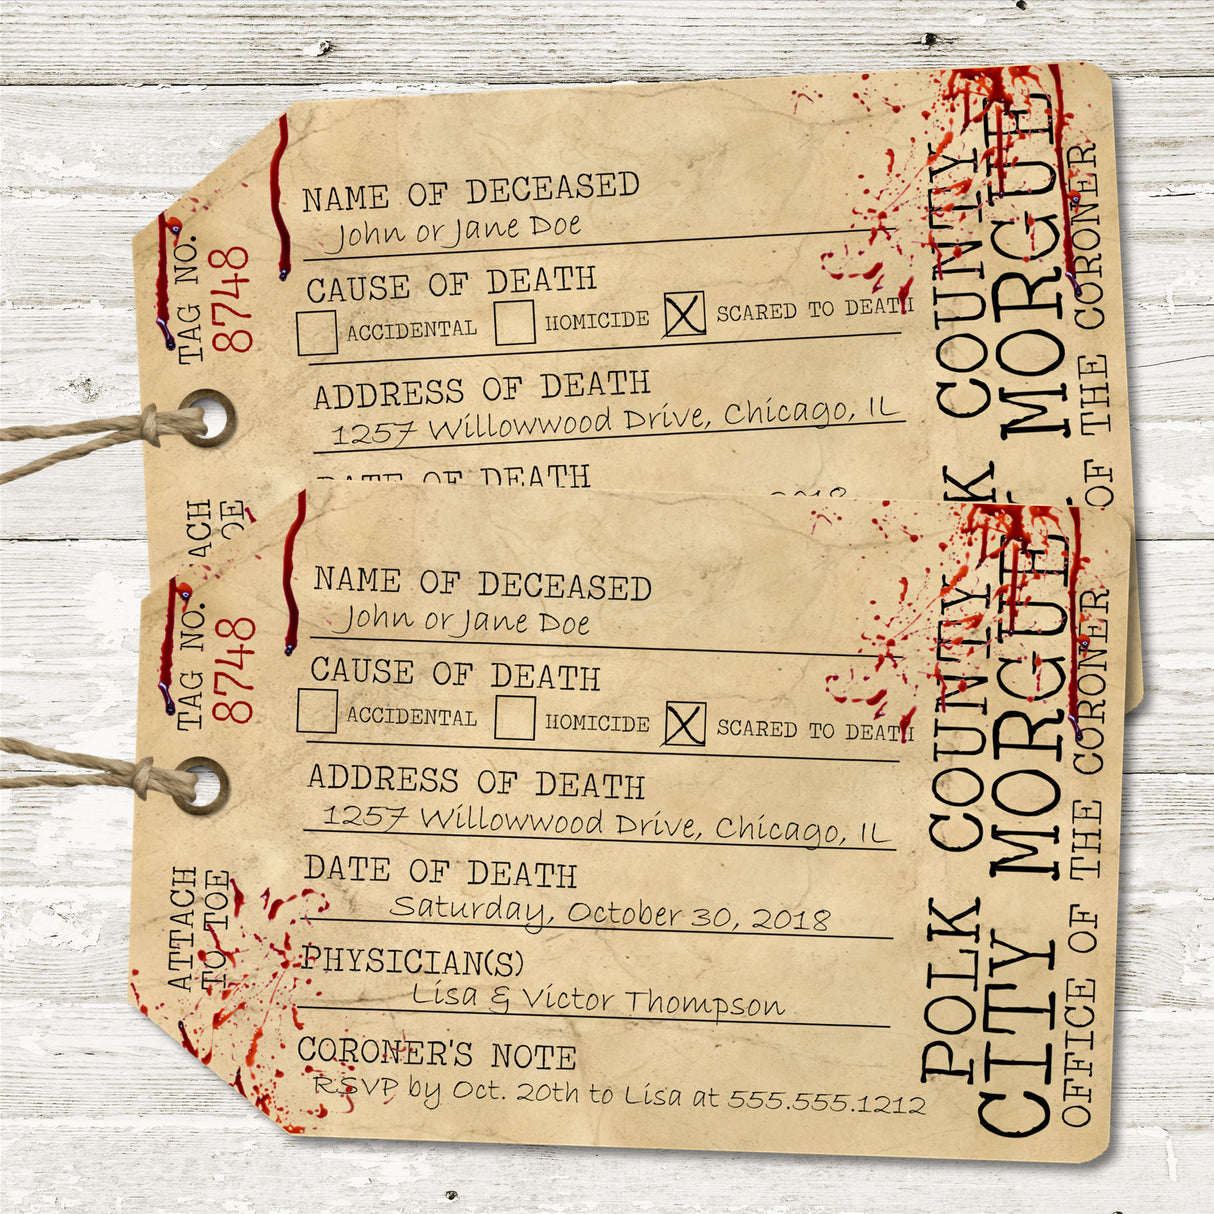 NAME OF DECEASED
John or Jane Doe
CAUSE OF DEATH
ACCIDENTAL HOMICIDE X SCARED TO DEATH
ADDRESS OF DEATH
1257 Willowwood Drive, Chicago, IL
DATE OF DEATH
2018
TAG NO.
8748
ATTACH
TOE
POLK COUNTY
MORGUE
OF THE CORONER
NAME OF DECEASED
John or Jane Doe
CAUSE OF DEATH
ACCIDENTAL HOMICIDE X SCARED TO DEATH
ADDRESS OF DEATH
1257 Willowwood Drive, Chicago, IL
DATE OF DEATH
Saturday, October 30, 2018
PHYSICIAN(S)
Lisa & Victor Thompson
CORONER'S NOTE
RSVP by Oct. 20th to Lisa at 555.555.1212
TAG NO.
8748
ATTACH
TO TOE
POLK COUNTY
CITY MORGUE
OFFICE OF THE CORONER